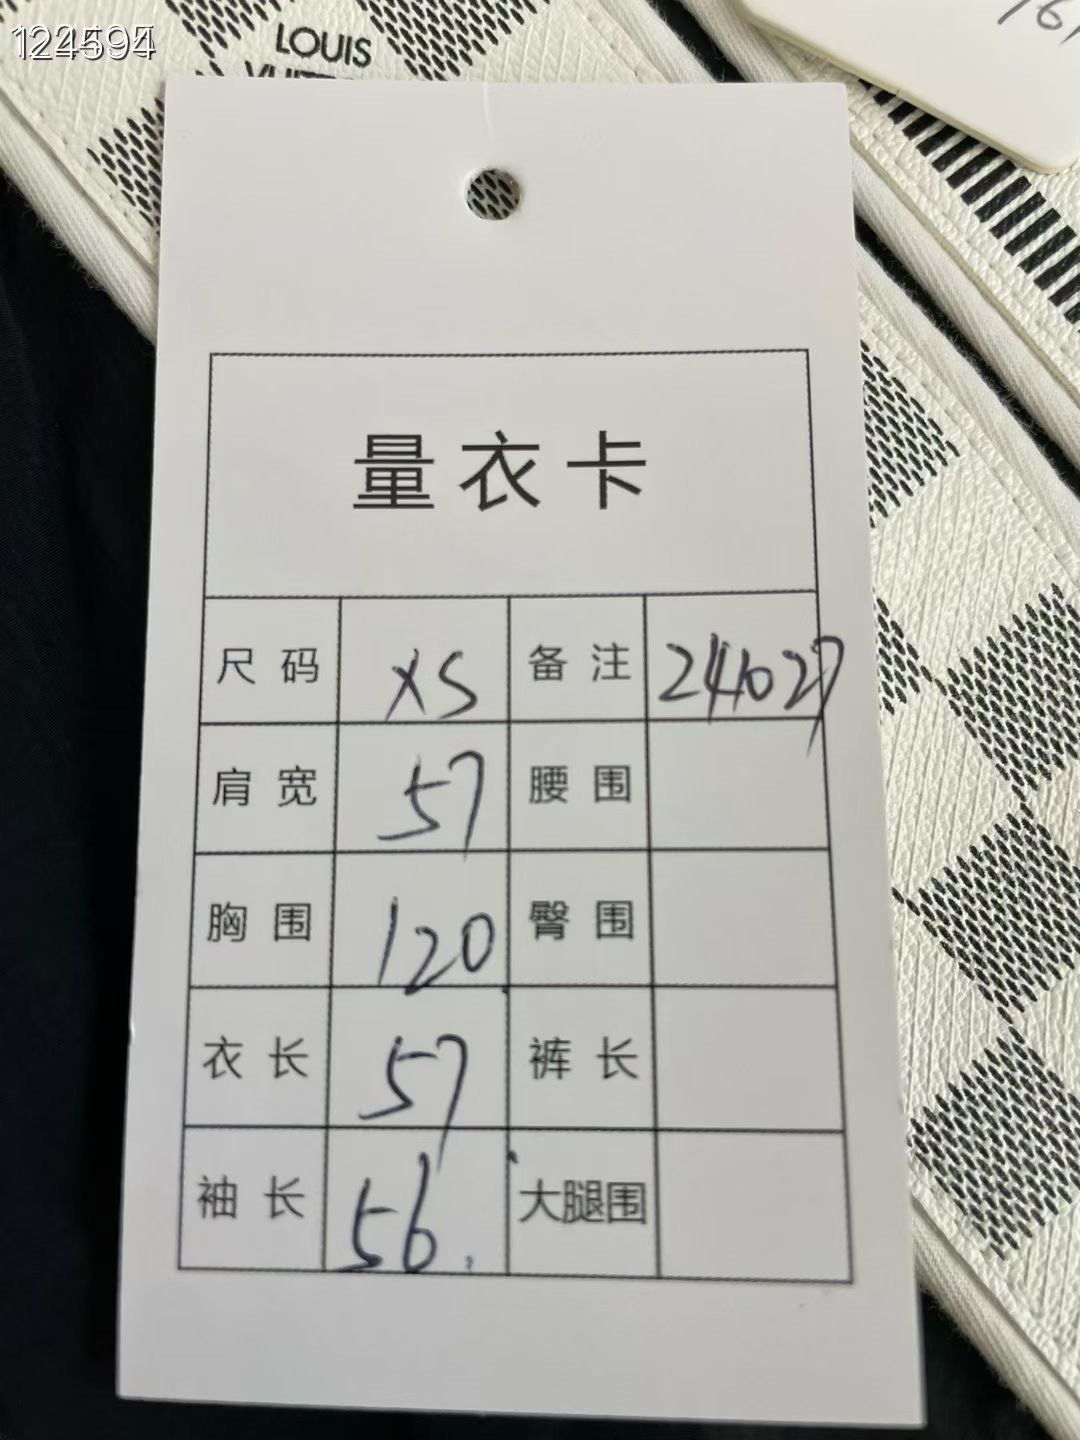 LOUIS
量衣卡
尺码 XS 备注 241027
肩宽 57 腰围
胸围 120 臀围
衣长 57 裤长
袖长 56. 大腿围